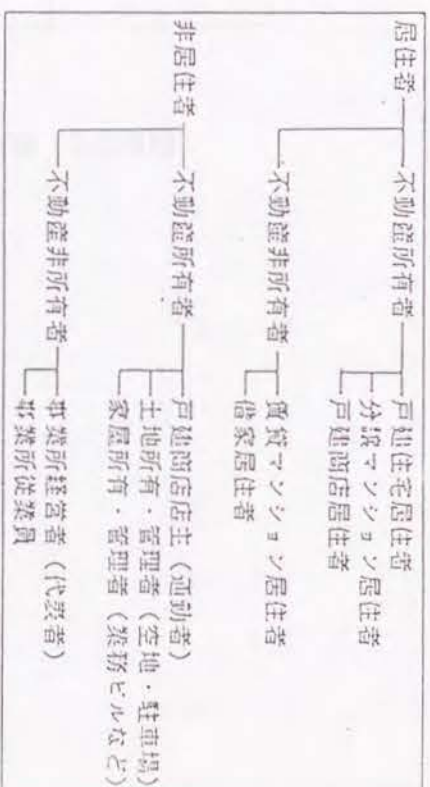 居住者
不動産所有者
戸建住宅居住者
分譲マンション居住者
戸建商店居住者
不動産非所有者
賃貸マンション居住者
借家居住者
非居住者
不動産所有者
戸建商店店主(通勤者)
土地所有・管理者(空地・駐車場)
家屋所有・管理者(業務ビルなど)
不動産非所有者
事業所経営者(代表者)
事業所従業員